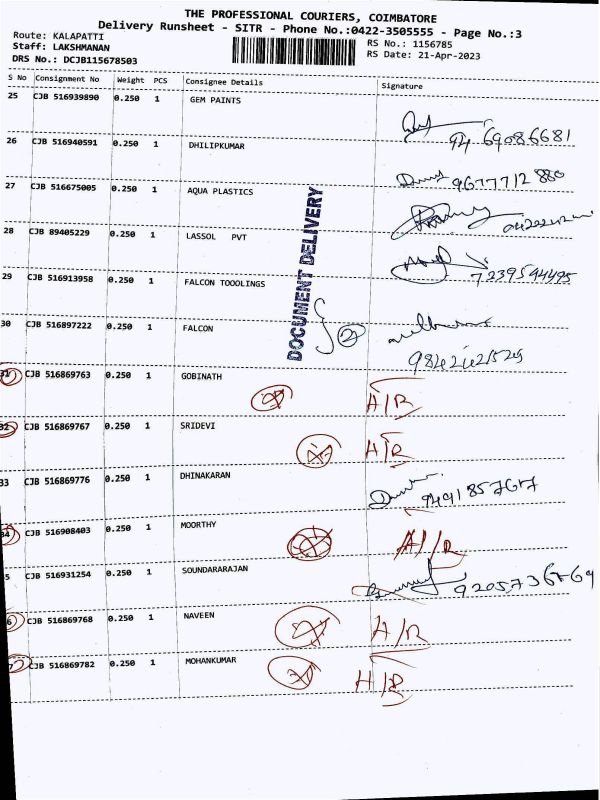 THE PROFESSIONAL COURIERS, COIMBATORE
Delivery Runsheet - SITR - Phone No.:0422-3505555 - Page No.:3
Route: KALAPATTI
RS No.: 1156785
Staff: LAKSHMANAN
RS Date: 21-Apr-2023
DRS No.: DCJB115678503
S No Consignment No Weight PCS Consignee Details Signature
25 CJB 516939890 0.250 1 GEM PAINTS
94 69086681
26 CJB 516940591 0.250 1 DHILIPKUMAR
9677712880
27 CJB 516675005 0.250 1 AQUA PLASTICS
28 CJB 89405229 0.250 1 LASSOL PVT
7239594495
29 CJB 516913958 0.250 1 FALCON TOOOLINGS
DOCUMENT DELIVERY
2
30 CJB 516897222 0.250 1 FALCON
31 CJB 516869763 0.250 1 GOBINATH
A/R
32 CJB 516869767 0.250 1 SRIDEVI
A/R
33 CJB 516869776 0.250 1 DHINAKARAN
34 CJB 516908403 0.250 1 MOORTHY
A/R
5 CJB 516931254 0.250 1 SOUNDARARAJAN
6 CJB 516869768 0.250 1 NAVEEN
A/R
7 CJB 516869782 0.250 1 MOHANKUMAR